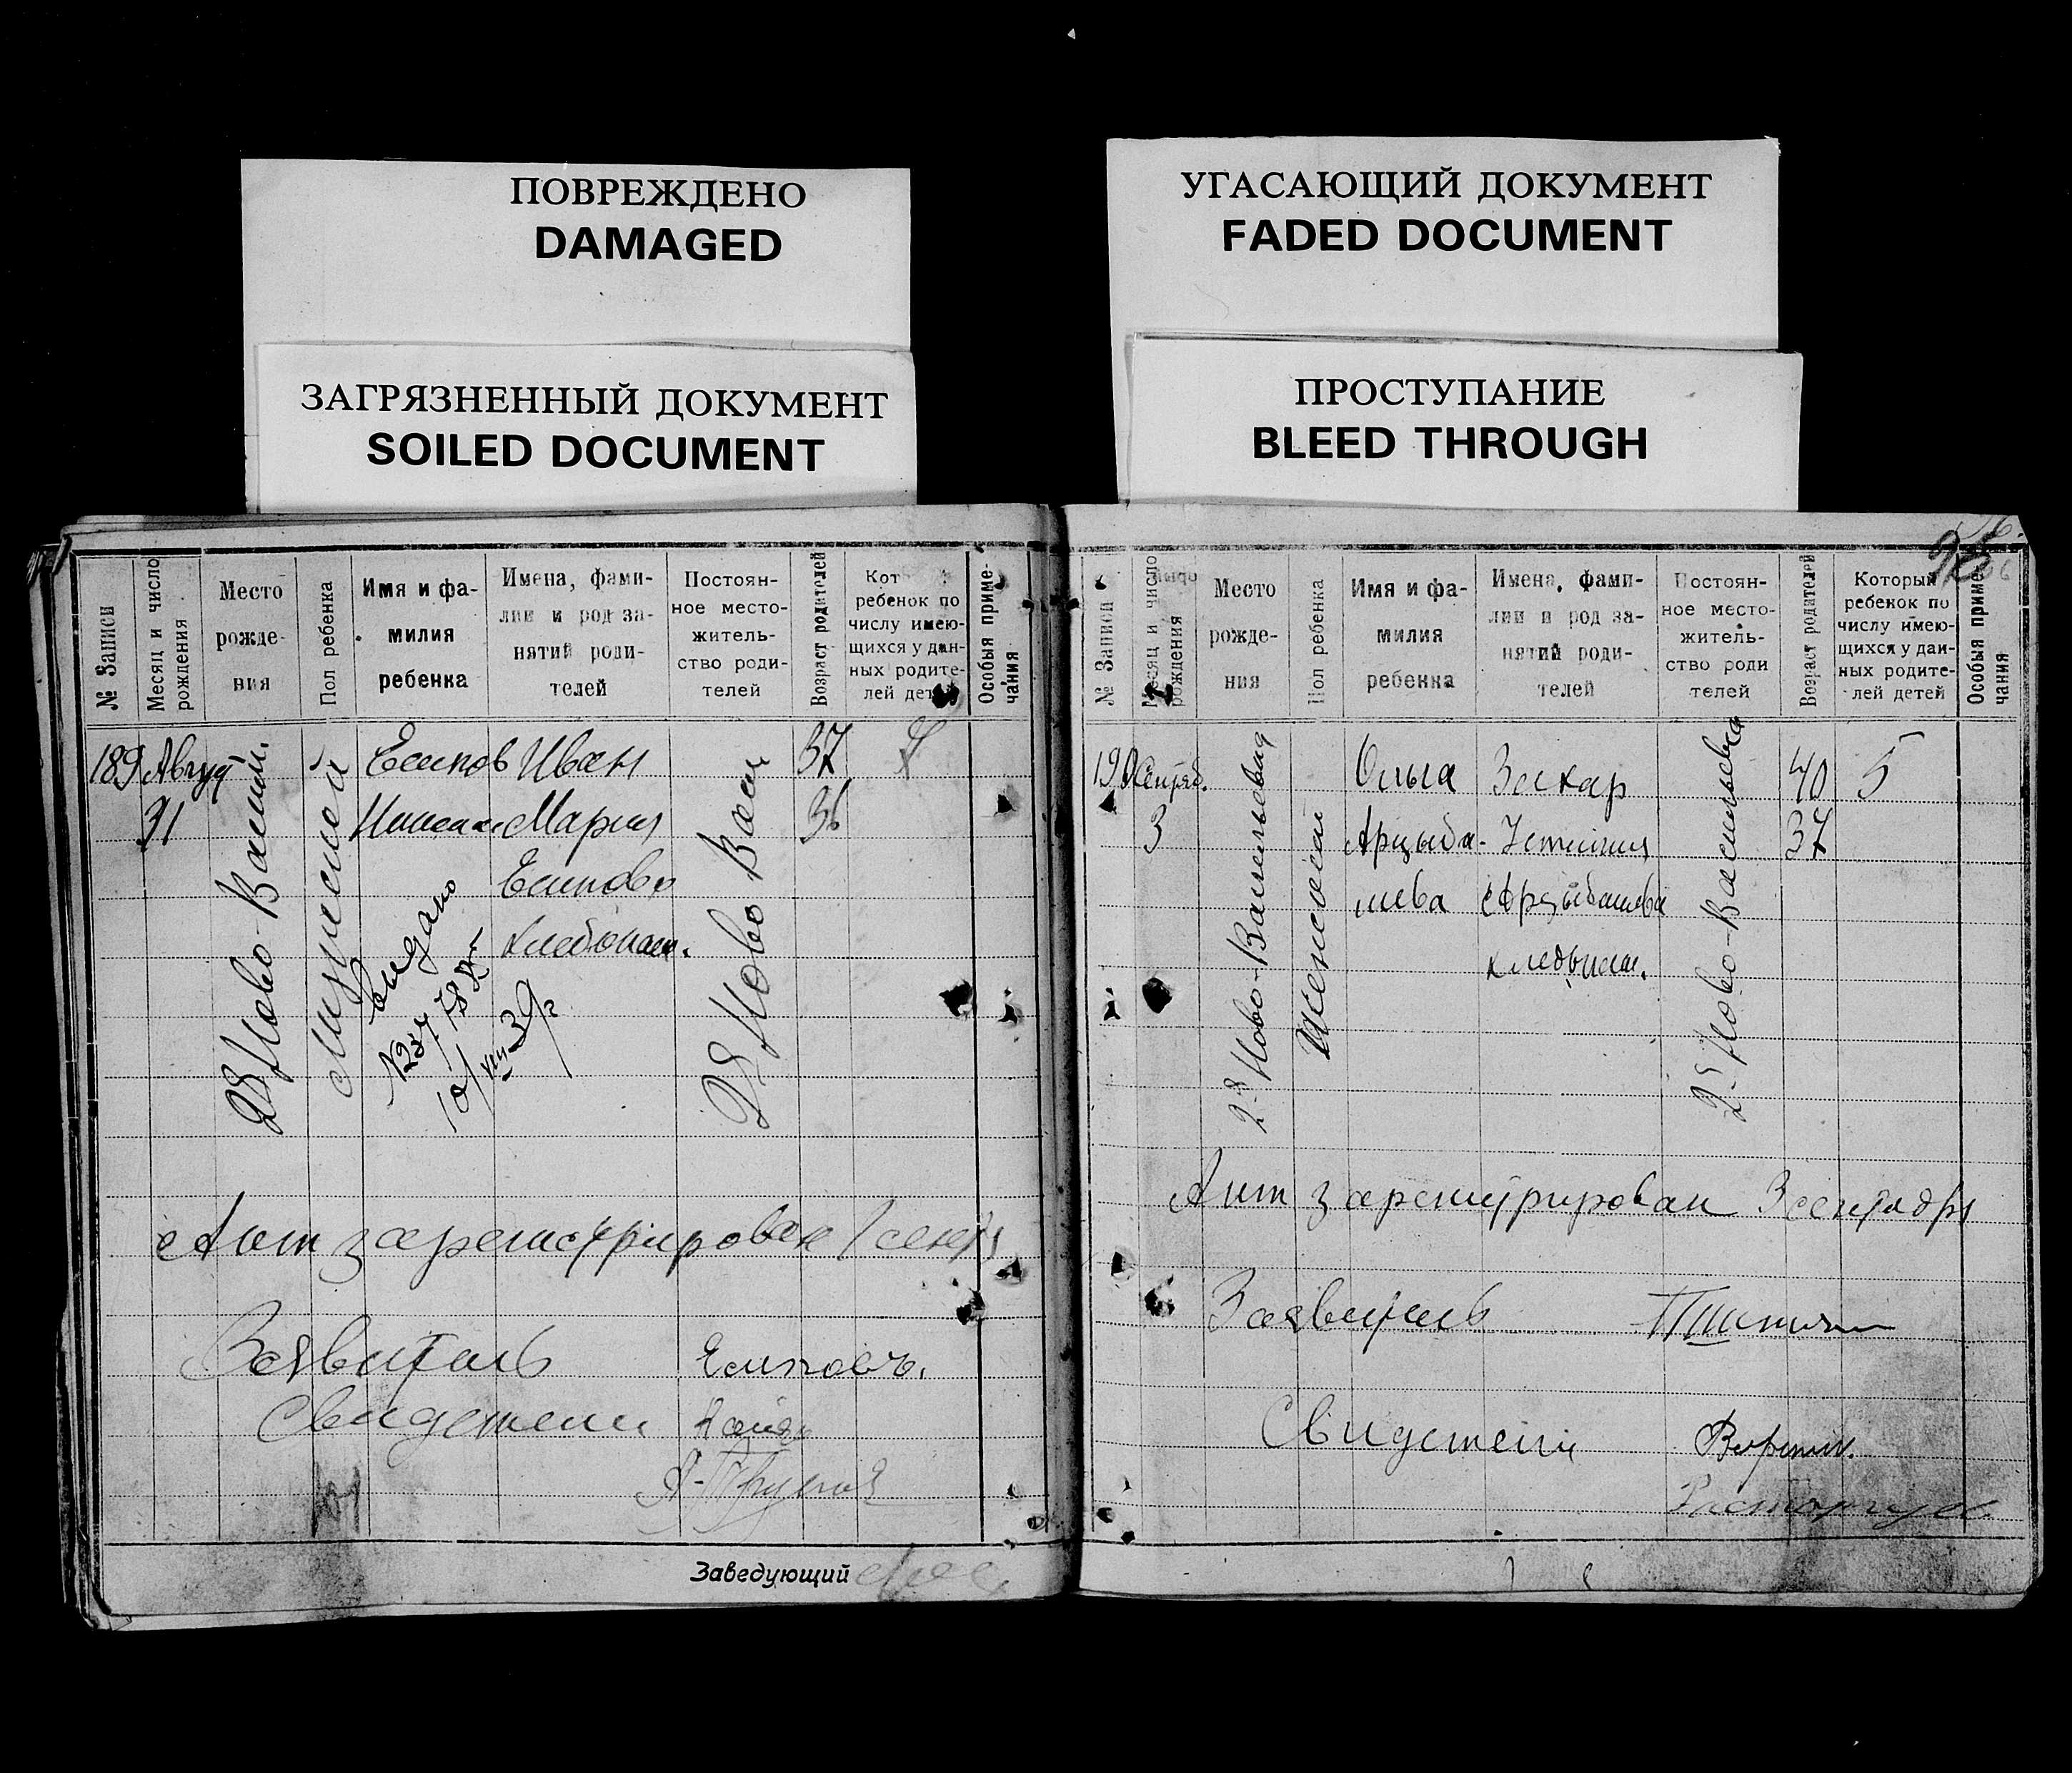 ПОВРЕЖДЕНО
DAMAGED
ЗАГРЯЗНЕННЫЙ ДОКУМЕНТ
SOILED DOCUMENT
УГАСАЮЩИЙ ДОКУМЕНТ
FADED DOCUMENT
ПРОСТУПАНИЕ
BLEED THROUGH
№ Записи
Месяц и число
рождения
Место
рожде-
ния
Пол ребенка
Имя и фа-
милия
ребенка
Имена, фами-
лии и род за-
нятий роди-
телей
Постоян-
ное место-
житель-
ство роди-
телей
Возраст родителей
Кот
ребенок по
числу имею-
щихся у дан-
ных родите-
лей дет
Особыя приме-
чания
189 Август Есипов Иван 37
31 Мария 36
Есиповы
хлебопаш.
Ново-Васил.
Мужской
выдано
Ново Васил
Акт зарегистрирован 1 сент
Заявитель Есиповъ.
Свидетели
Заведующий
№ Записи
Месяц и число
рождения
Место
рожде-
ния
Пол ребенка
Имя и фа-
милия
ребенка
Имена, фами-
лии и род за-
нятий роди-
телей
Постоян-
ное место-
житель-
ство роди
телей
Возраст родителей
Который
ребенок по
числу имею-
щихся у дан-
ных родите-
лей детей
Особыя приме
чания
190 Сентяб. Ольга Захар 40 5
3 Арцыба- Устиния 37
шева Арцыбашевы
хлебопаш.
2е Ново-Васильевка
Женский
2е Ново-Васильевка
Акт зарегистрирован 3 сентября
Заявитель
Свидетели
Расторгуев